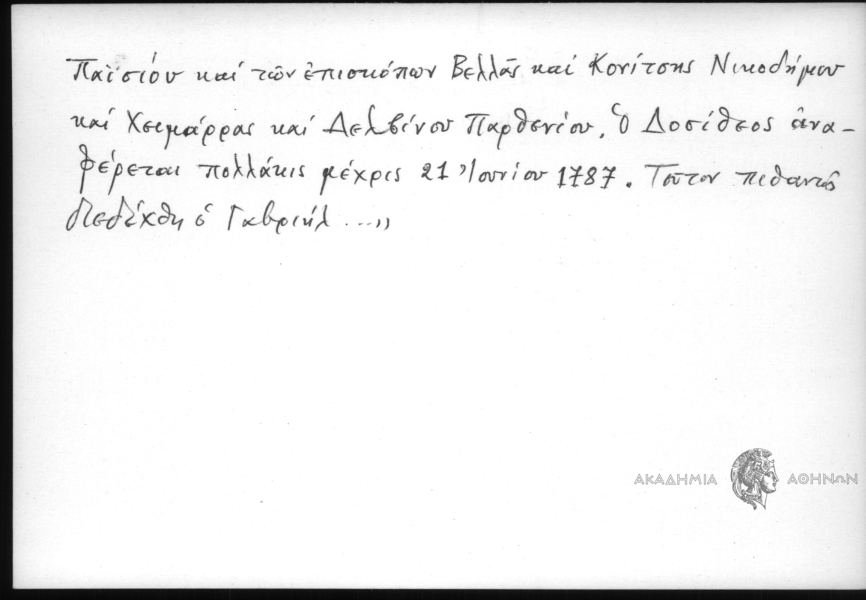 Παϊσίου καί τῶν ἐπισκόπων Βελλᾶς καί Κονίτσης Νικοδήμου
καί Χειμάρρας καί Δελβίνου Παρθενίου. Ὁ Δοσίθεος ἀνα-
φέρεται πολλάκις μέχρις 21 Ἰουνίου 1787. Τοῦτον πιθανῶς
διεδέχθη ὁ Γαβριήλ ...,,
ΑΚΑΔΗΜΙΑ ΑΘΗΝΩΝ